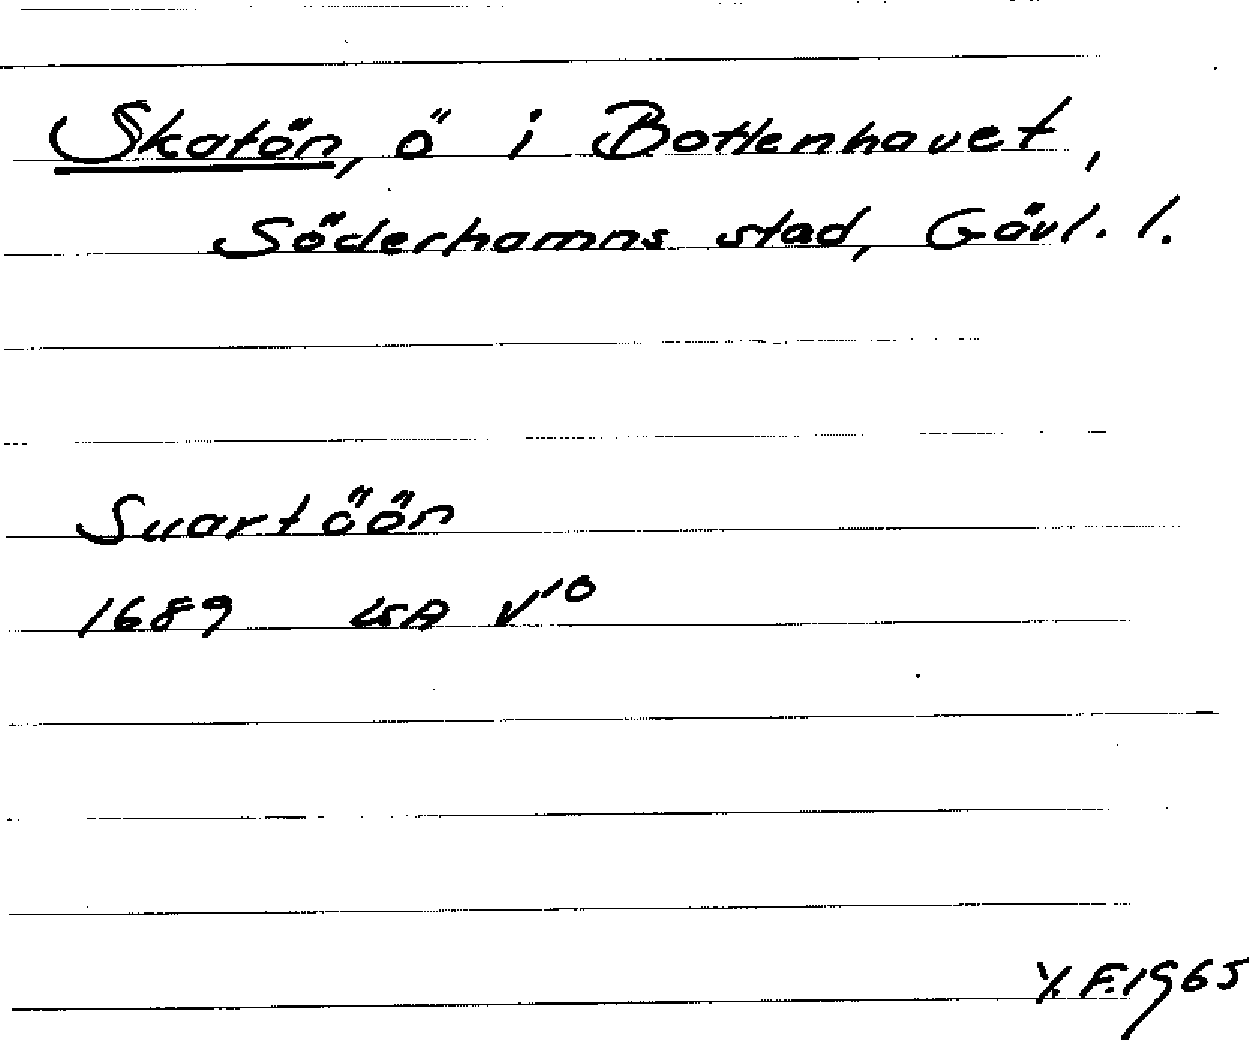 Skatön, ö i Bottenhavet,
Söderhamns stad, Gävl. l.
Svartöön
1689 LSA V10
Y. F. 1965